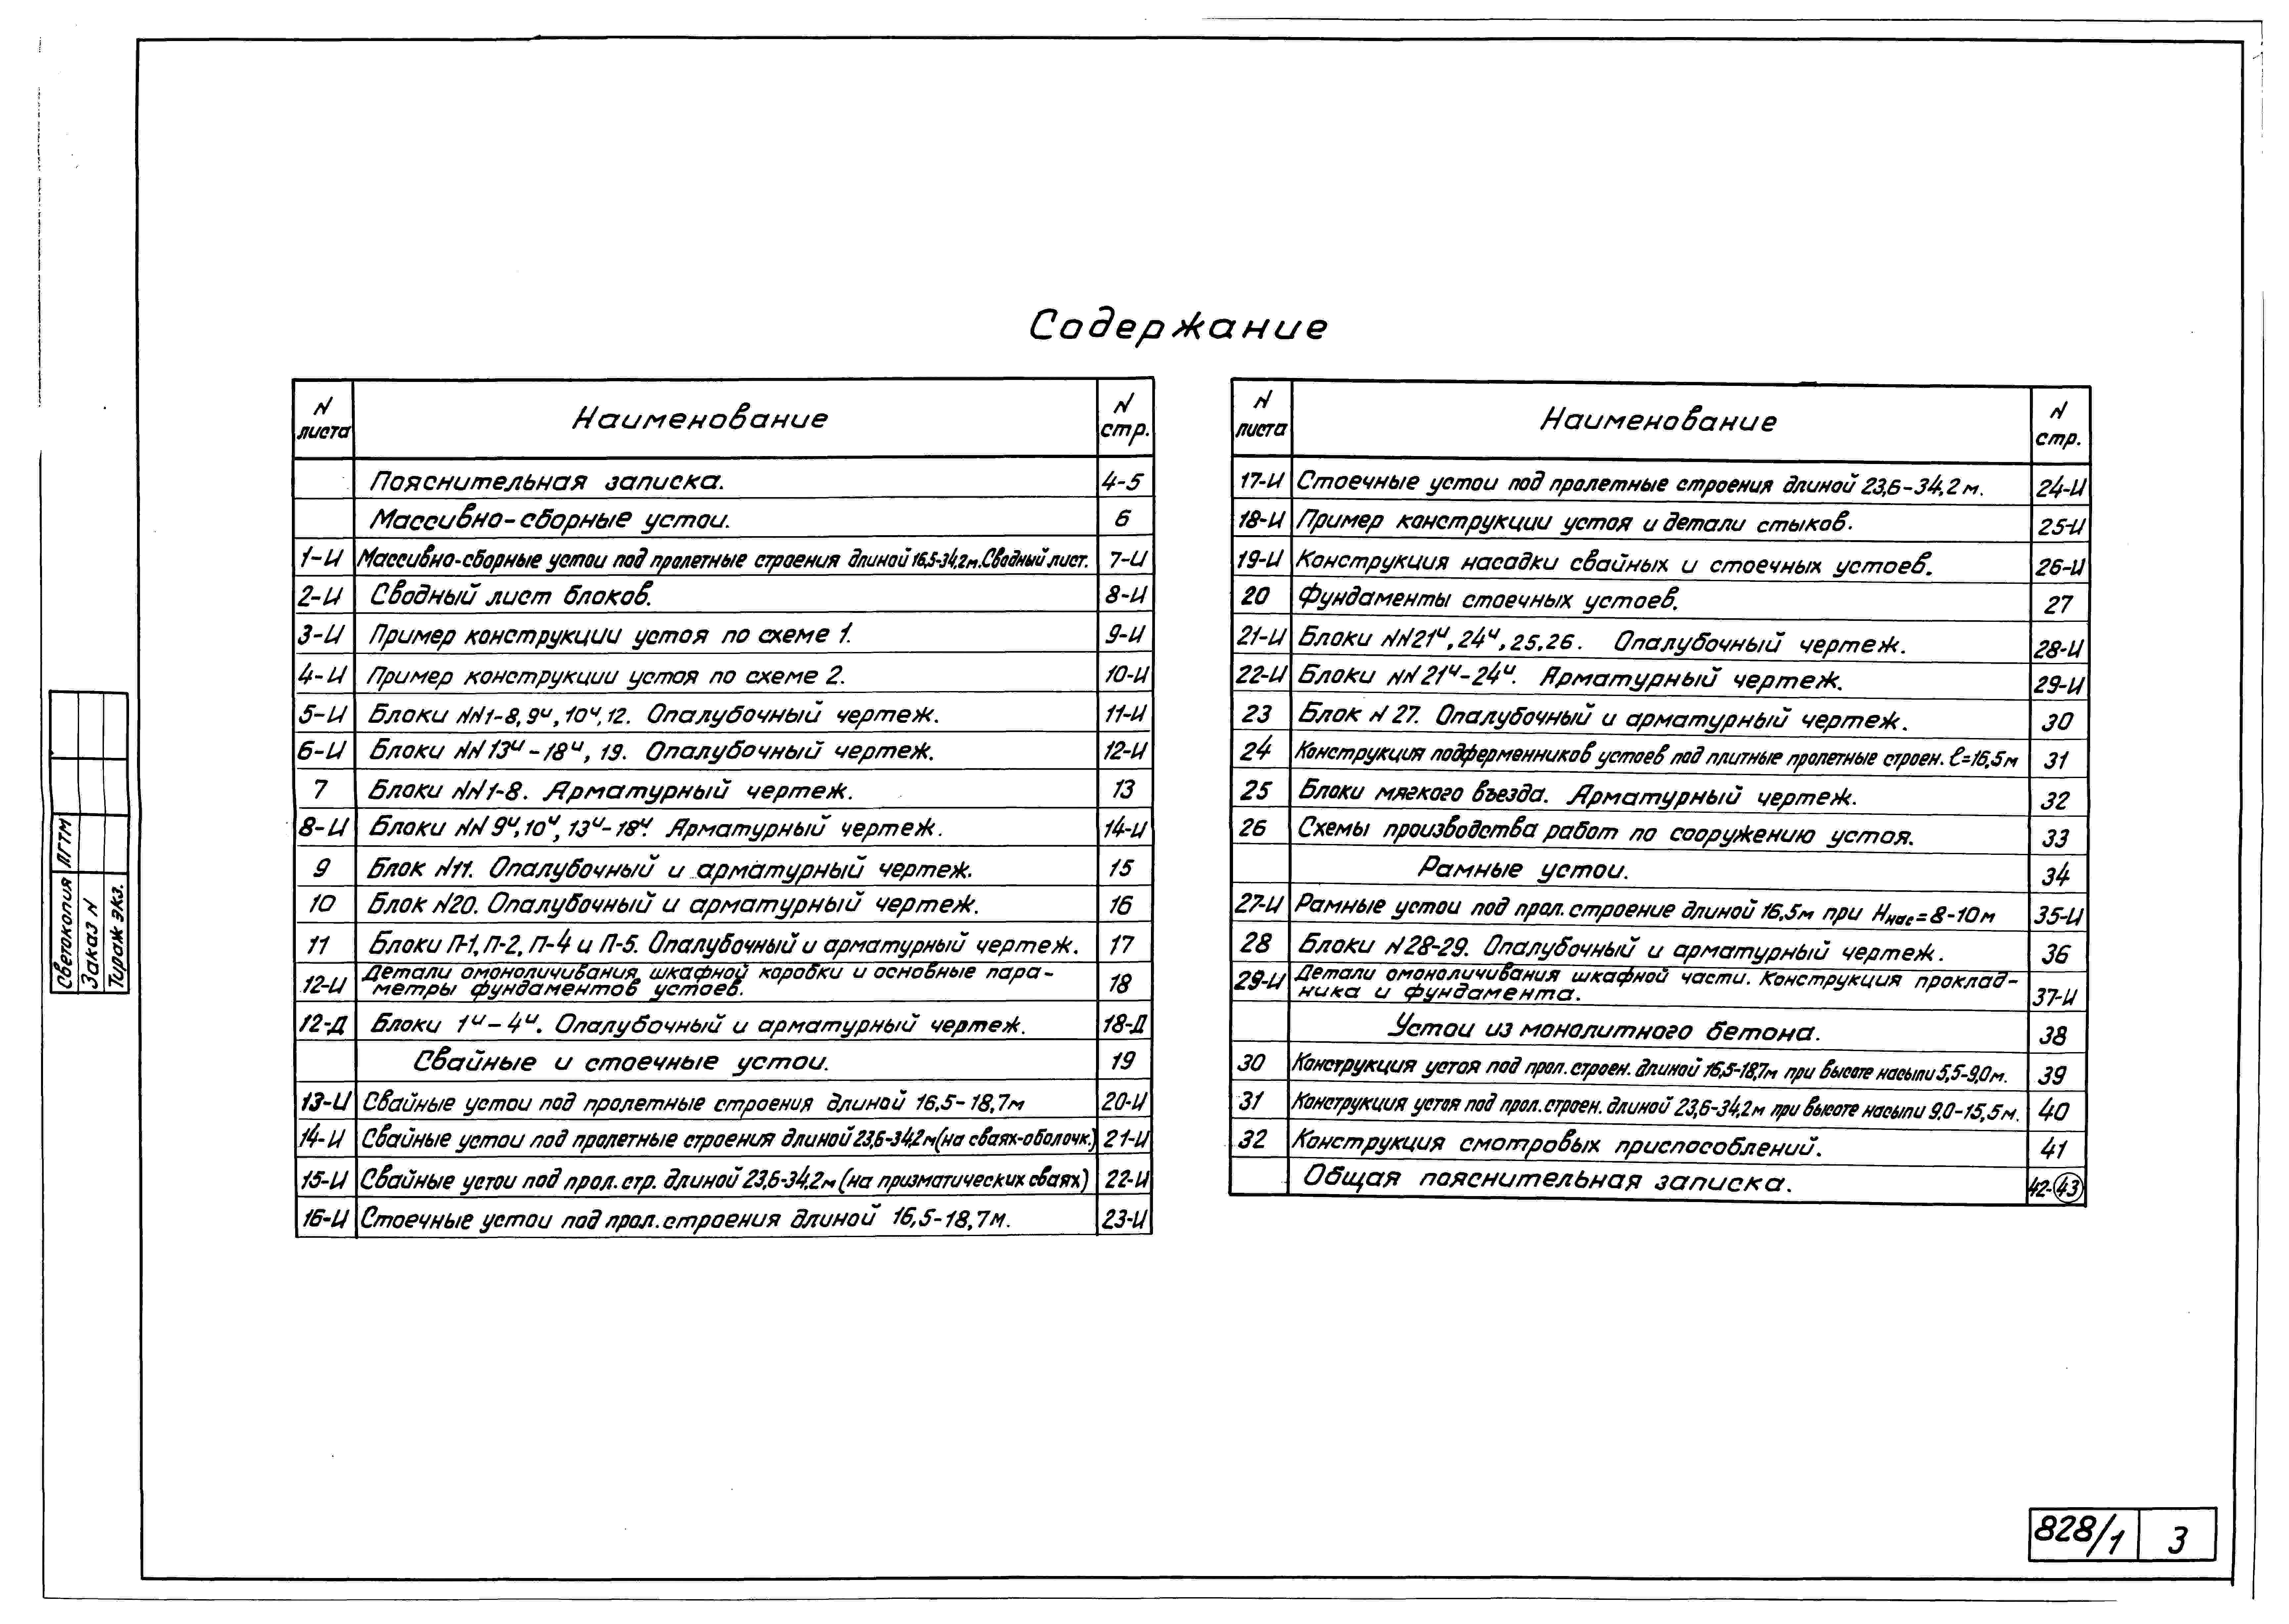 Содержание
N листа Наименование N стр.
Пояснительная записка. 4-5
Массивно-сборные устои. 6
1-И Массивно-сборные устои под пролетные строения длиной 16,5-34,2м. Сводный лист. 7-И
2-И Сводный лист блоков. 8-И
3-И Пример конструкции устоя по схеме 1. 9-И
4-И Пример конструкции устоя по схеме 2. 10-И
5-И Блоки NN1-8, 9ᵁ, 10ᵁ, 12. Опалубочный чертеж. 11-И
6-И Блоки NN 13ᵁ-18ᵁ, 19. Опалубочный чертеж. 12-И
7 Блоки NN1-8. Арматурный чертеж. 13
8-И Блоки NN 9ᵁ, 10ᵁ, 13ᵁ-18ᵁ. Арматурный чертеж. 14-И
9 Блок N11. Опалубочный и арматурный чертеж. 15
10 Блок N20. Опалубочный и арматурный чертеж. 16
11 Блоки П-1, П-2, П-4 и П-5. Опалубочный и арматурный чертеж. 17
12-И Детали омоноличивания шкафной коробки и основные пара-
метры фундаментов устоев. 18
12-Д Блоки 1ᵁ-4ᵁ. Опалубочный и арматурный чертеж. 18-Д
Свайные и стоечные устои. 19
13-И Свайные устои под пролетные строения длиной 16,5-18,7м 20-И
14-И Свайные устои под пролетные строения длиной 23,6-34,2м (на сваях-оболочк.) 21-И
15-И Свайные устои под прол. стр. длиной 23,6-34,2м (на призматических сваях) 22-И
16-И Стоечные устои под прол. строения длиной 16,5-18,7м. 23-И
N листа Наименование N стр.
17-И Стоечные устои под пролетные строения длиной 23,6-34,2м. 24-И
18-И Пример конструкции устоя и детали стыков. 25-И
19-И Конструкция насадки свайных и стоечных устоев. 26-И
20 Фундаменты стоечных устоев. 27
21-И Блоки NN21ᵁ, 24ᵁ, 25, 26. Опалубочный чертеж. 28-И
22-И Блоки NN21ᵁ-24ᵁ. Арматурный чертеж. 29-И
23 Блок N 27. Опалубочный и арматурный чертеж. 30
24 Конструкция подферменников устоев под плитные пролетные строен. ℓ=16,5м 31
25 Блоки мягкого въезда. Арматурный чертеж. 32
26 Схемы производства работ по сооружению устоя. 33
Рамные устои. 34
27-И Рамные устои под прол. строение длиной 16,5м при Ннас=8-10м 35-И
28 Блоки N28-29. Опалубочный и арматурный чертеж. 36
29-И Детали омоноличивания шкафной части. Конструкция проклад-
ника и фундамента. 37-И
Устои из монолитного бетона. 38
30 Конструкция устоя под прол. строен. длиной 16,5-18,7м при высоте насыпи 5,5-9,0м. 39
31 Конструкция устоя под прол. строен. длиной 23,6-34,2м при высоте насыпи 9,0-15,5м. 40
32 Конструкция смотровых приспособлений. 41
Общая пояснительная записка. 42-43
Светокопия ЛГТМ
Заказ N
Тираж экз.
828/1 3